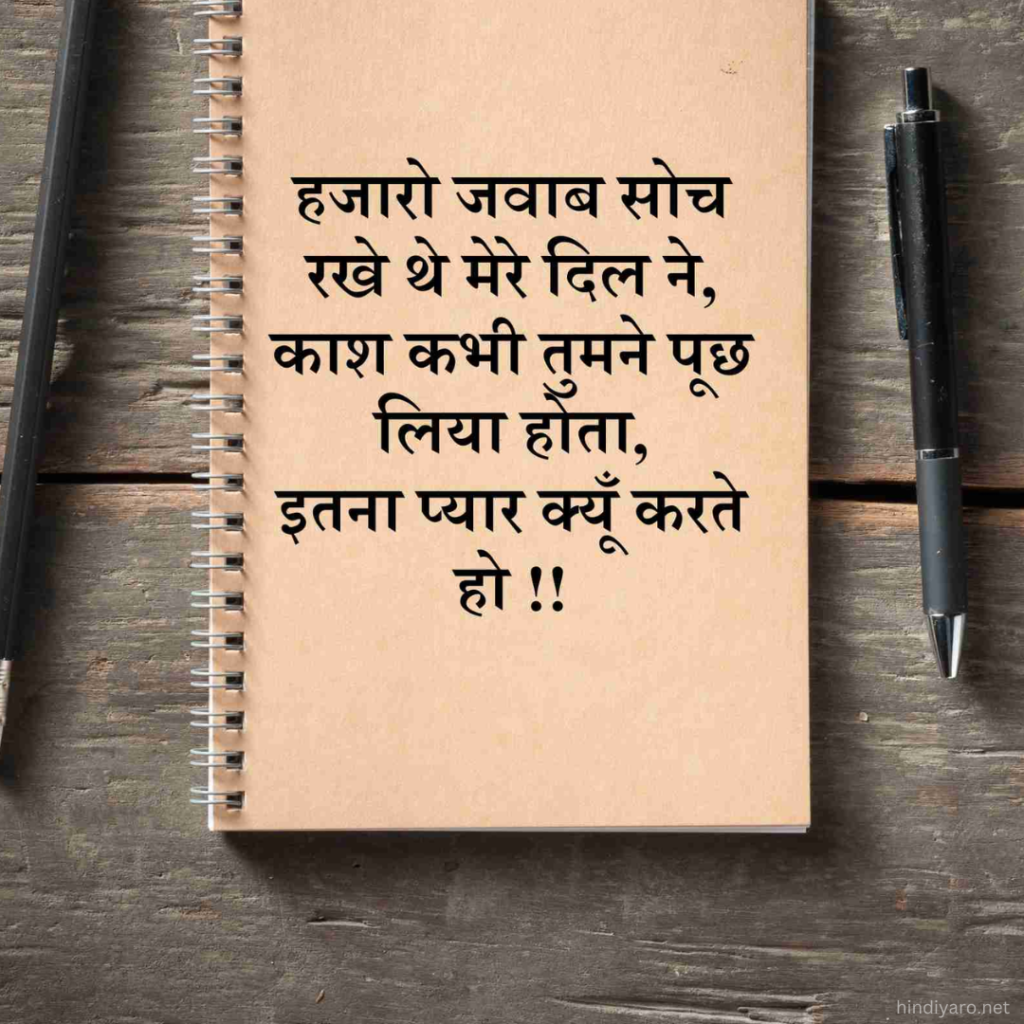 हजारो जवाब सोच
रखे थे मेरे दिल ने,
काश कभी तुमने पूछ
लिया होता,
इतना प्यार क्यूँ करते
हो !!
hindiyaro.net